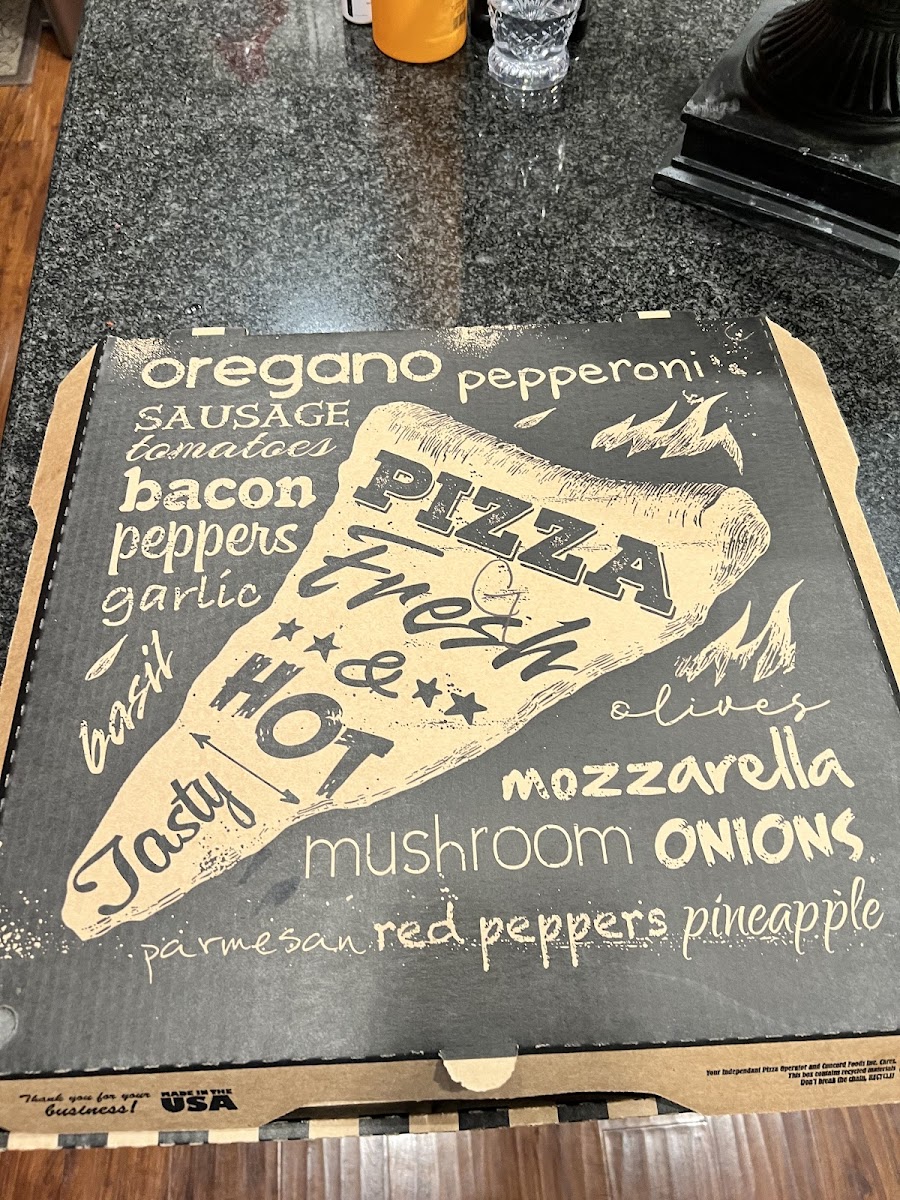 oregano pepperoni
SAUSAGE
tomatoes
bacon
peppers
garlic
basil
PIZZA
Fresh
&
HOT
Tasty
olives
mozzarella
mushroom ONIONS
parmesan red peppers pineapple
Thank you for your
business!
MADE IN THE
USA
Your Independant Pizza Operator and Concord Foods Inc. Cares.
This box contains recycled materials
Don't break the chain, RECYCLE!